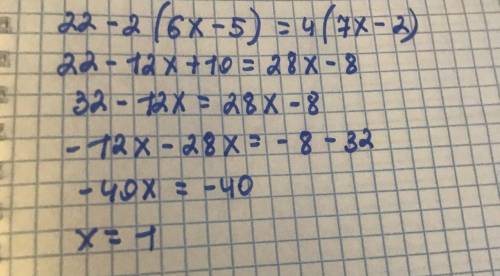 22 - 2 (6x - 5) = 4 (7x - 2)
22 - 12x + 10 = 28x - 8
32 - 12x = 28x - 8
- 12x - 28x = - 8 - 32
- 40x = -40
x = -1